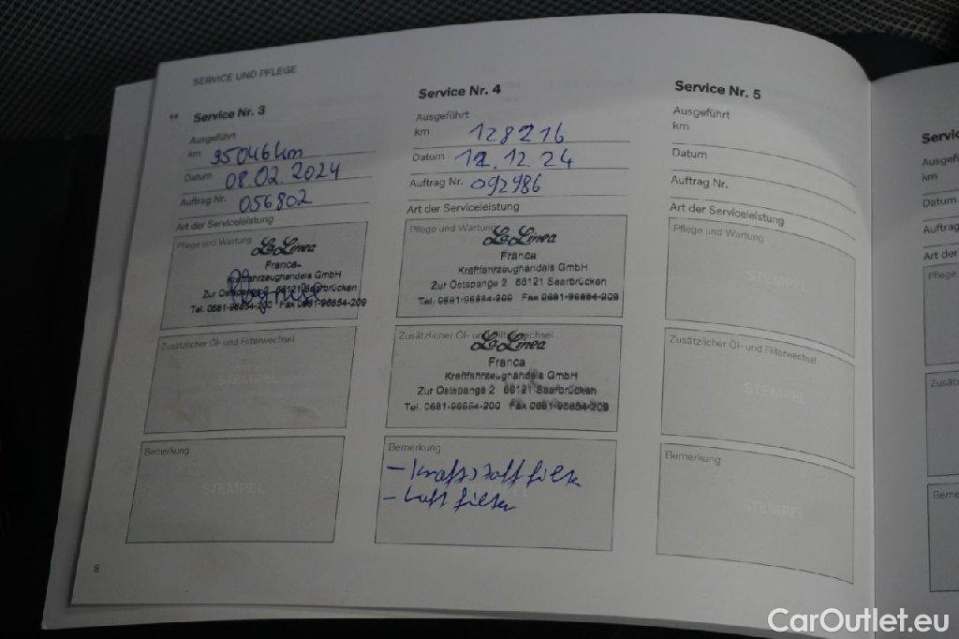 SERVICE UND PFLEGE
Service Nr. 3
Ausgeführt
km 95046 km
Datum 08.02.2024
Auftrag Nr. 056802
Art der Serviceleistung
Pflege und Wartung
La Linea
Franca
Kraftfahrzeughandels GmbH
Zur Ostspange 2 66121 Saarbrücken
Tel. 0681-96854-200 Fax 0681-96854-209
Zusätzlicher Öl- und Filterwechsel
Bemerkung
STEMPEL
9
Service Nr. 4
Ausgeführt
km 128216
Datum 12.12.24
Auftrag Nr. 092986
Art der Serviceleistung
Pflege und Wartung
La Linea
Franca
Kraftfahrzeughandels GmbH
Zur Ostspange 2 66121 Saarbrücken
Tel. 0681-96854-200 Fax 0681-96854-209
Zusätzlicher Öl- und Filterwechsel
La Linea
Franca
Kraftfahrzeughandels GmbH
Zur Ostspange 2 66121 Saarbrücken
Tel. 0681-96854-200 Fax 0681-96854-209
Bemerkung
- Kraftstofffilter
- Luftfilter
STEMPEL
Service Nr. 5
Ausgeführt
km
Datum
Auftrag Nr.
Art der Serviceleistung
Pflege und Wartung
STEMPEL
Zusätzlicher Öl- und Filterwechsel
STEMPEL
Bemerkung
STEMPEL
Servic
Ausgef
km
Datum
Auftrag
Art der
Pflege
Zusätz
Beme
CarOutlet.eu